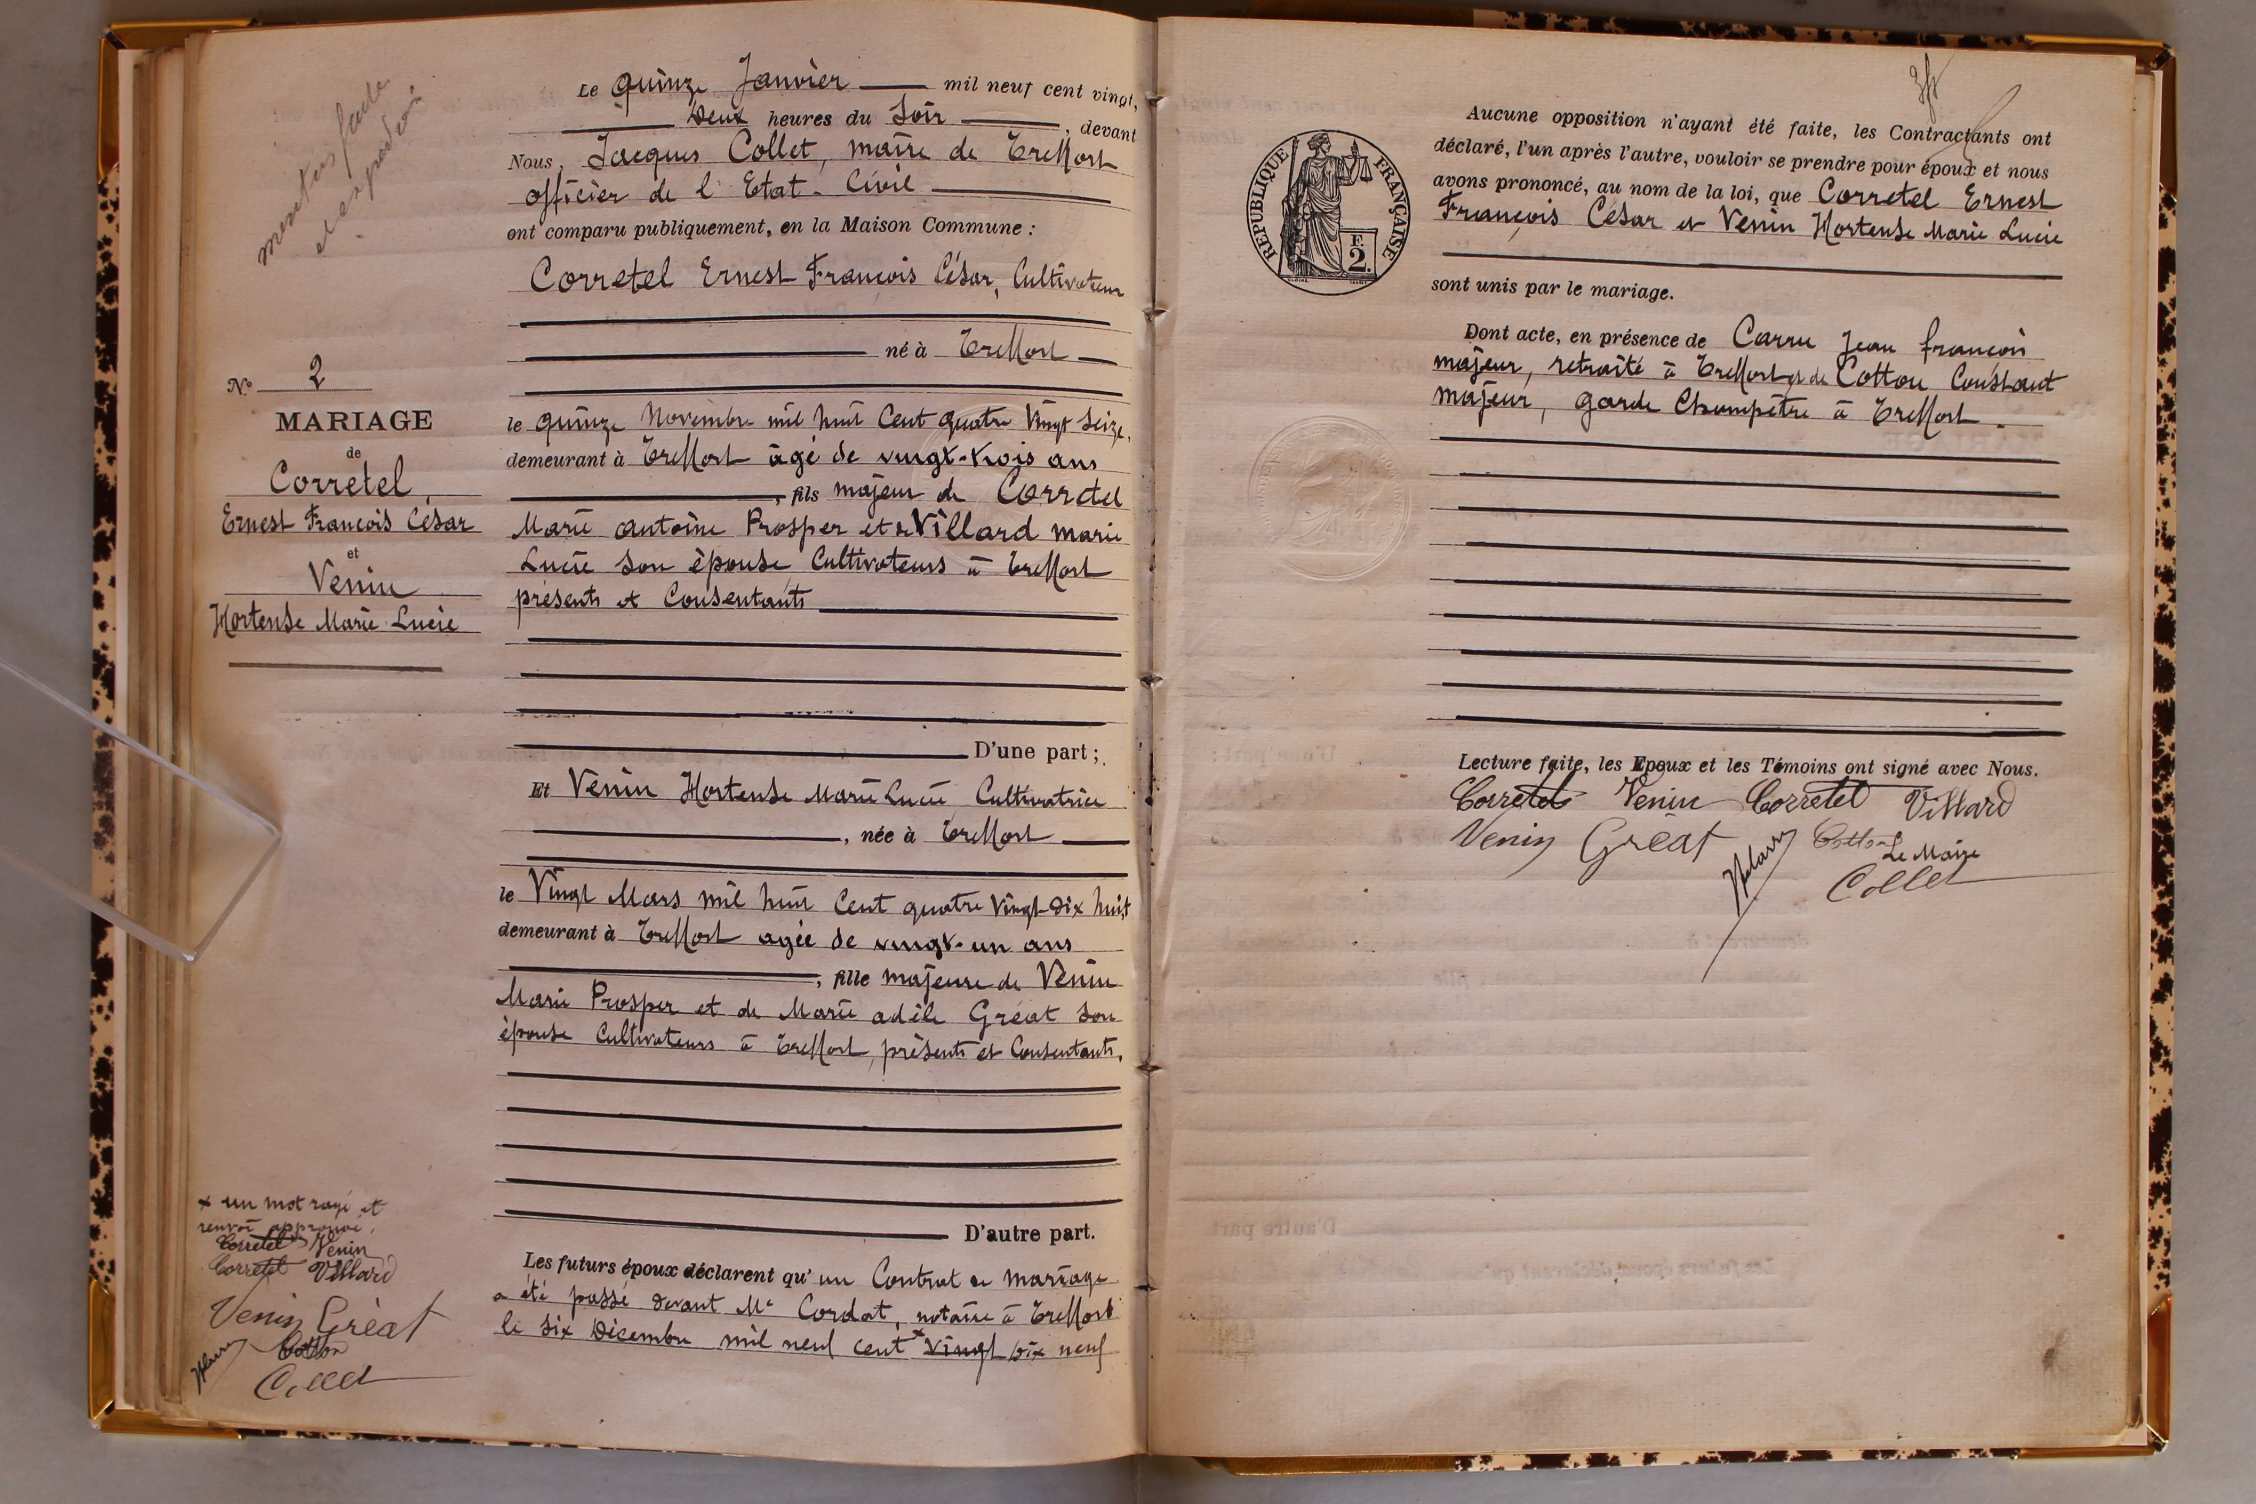 mentions faite
et expédiée
Le quinze Janvier mil neuf cent vingt,
Deux heures du Soir, devant
Nous, Jacques Collet, maire de Treffort
officier de l'Etat-Civil
ont comparu publiquement, en la Maison Commune :
Corretel Ernest François César, Cultivateur
né à Treffort
le quinze Novembre mil huit Cent quatre Vingt Seize,
demeurant à Treffort âgé de vingt-trois ans
, fils majeur de Corretel
Marie Antoine Prosper et de Villard marie
Lucie Son épouse Cultivateurs à Treffort
présents et Consentants
D'une part ;
Et Venin Hortense Marie Lucie Cultivatrice
, née à Treffort
le Vingt Mars mil huit Cent quatre Vingt-Dix huit
demeurant à Treffort agée de vingt-un ans
, fille majeure de Venin
Marie Prosper et de Marie adèle Gréat Son
épouse Cultivateurs à Treffort, présents et Consentants.
D'autre part.
Les futurs époux déclarent qu'un Contrat de mariage
a été passé devant Me Cordat, notaire à Treffort
le Six Décembre mil neuf cent x vingt dix neuf
No 2
MARIAGE
de
Corretel,
Ernest François César
et
Venin
Hortense Marie Lucie
x un mot rayé et
renvoi approuvé.
Corretel Venin
Corretel Villard
Venin Gréat
Cotton
Collet
REPUBLIQUE FRANÇAISE
F.
2.
Aucune opposition n'ayant été faite, les Contractants ont
déclaré, l'un après l'autre, vouloir se prendre pour époux et nous
avons prononcé, au nom de la loi, que Corretel Ernest
François César et Venin Hortense Marie Lucie
sont unis par le mariage.
Dont acte, en présence de Carru Jean françois
majeur, retraité à Treffort et de Cotton Constant
majeur, garde Champêtre à Treffort.
Lecture faite, les Epoux et les Témoins ont signé avec Nous.
Corretel Venin Corretel Villard
Venin Gréat Cotton
Le Maire
Collet